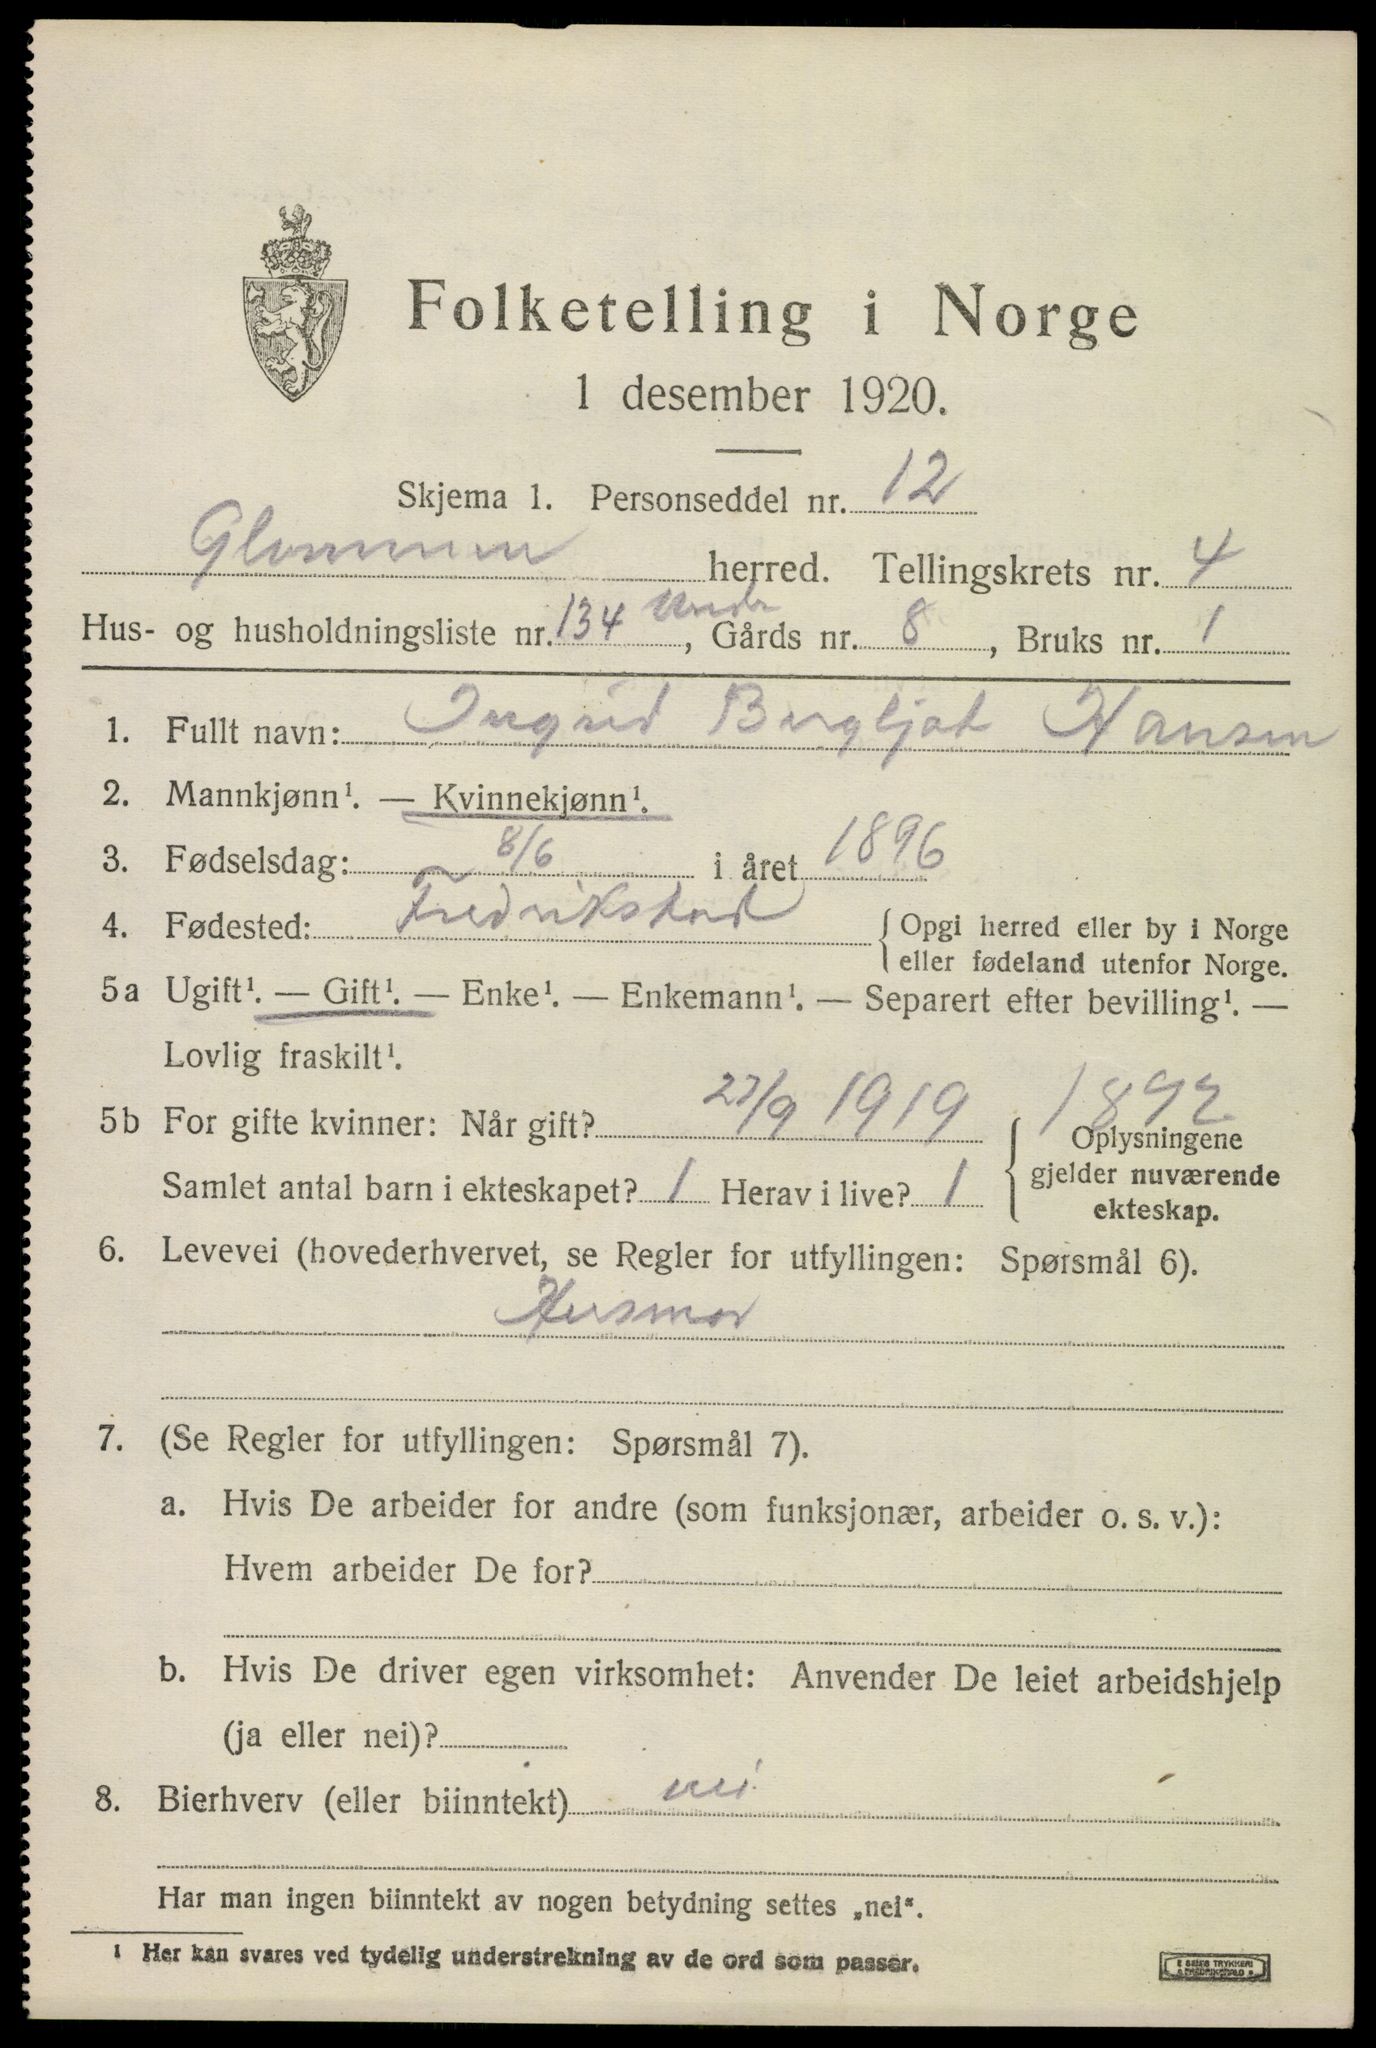 Folketelling i Norge
1 desember 1920.
Skjema 1. Personseddel nr. 12
Glemmen herred. Tellingskrets nr. 4
Hus- og husholdningsliste nr. 134 Under, Gårds nr. 8, Bruks nr. 1
1. Fullt navn: Ingrid Bergljot Hansen
2. Mannkjønn¹. — Kvinnekjønn¹.
3. Fødselsdag: 8/6 i året 1896
4. Fødested: Fredrikstad { Opgi herred eller by i Norge
eller fødeland utenfor Norge.
5a Ugift¹. — Gift¹. — Enke¹. — Enkemann¹. — Separert efter bevilling¹. —
Lovlig fraskilt¹.
5b For gifte kvinner: Når gift? 27/9 1919 1892
Oplysningene
Samlet antal barn i ekteskapet? 1 Herav i live? 1 { gjelder nuværende
ekteskap.
6. Levevei (hovederhvervet, se Regler for utfyllingen: Spørsmål 6).
Husmor
7. (Se Regler for utfyllingen: Spørsmål 7).
a. Hvis De arbeider for andre (som funksjonær, arbeider o. s. v.):
Hvem arbeider De for?
b. Hvis De driver egen virksomhet: Anvender De leiet arbeidshjelp
(ja eller nei)?
8. Bierhverv (eller biinntekt) nei
Har man ingen biinntekt av nogen betydning settes „nei“.
¹ Her kan svares ved tydelig understrekning av de ord som passer.
E SEMS TRYKKERI
FREDRIKSHALD